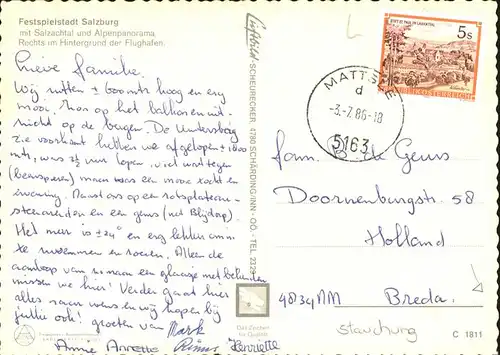 Festspielstadt Salzburg
mit Salzachtal und Alpenpanorama,
Rechts im Hintergrund der Flughafen.
Lieve familie.
Wij zitten ± 800mts hoog en erg
mooi. Mos op het balkon en uit-
zicht op de bergen. De Untersberg
zie voorkant hebben we afgelopen ± 1800
mts, was 7½ uur lopen, viel wat tegen
maar was een mooie tocht en
ervaring. Naast ons op een rotsplateau
steenarenden en een gems (net Blijdorp).
Het meer is ± 24° en erg lekker om in
te zwemmen en roeien. Alleen de
aanloop van s'naam een glaasje met bekenden
missen we hier! Verder gaat hier
alles naar wens en wij hopen bij
jullie ook! groeten van Mark
Annie Annette Rinus Henriette
Luftbild: SCHEURECKER, 4780 SCHÄRDING/INN - OÖ. - TEL. 2329
5s
REPUBLIK ÖSTERREICH
MATTSEE
d
-3.-7.86-18
5163
Fam. de Geus
Doornenburgstr. 58
Holland
4834 NM Breda.
stauchung
C 1811